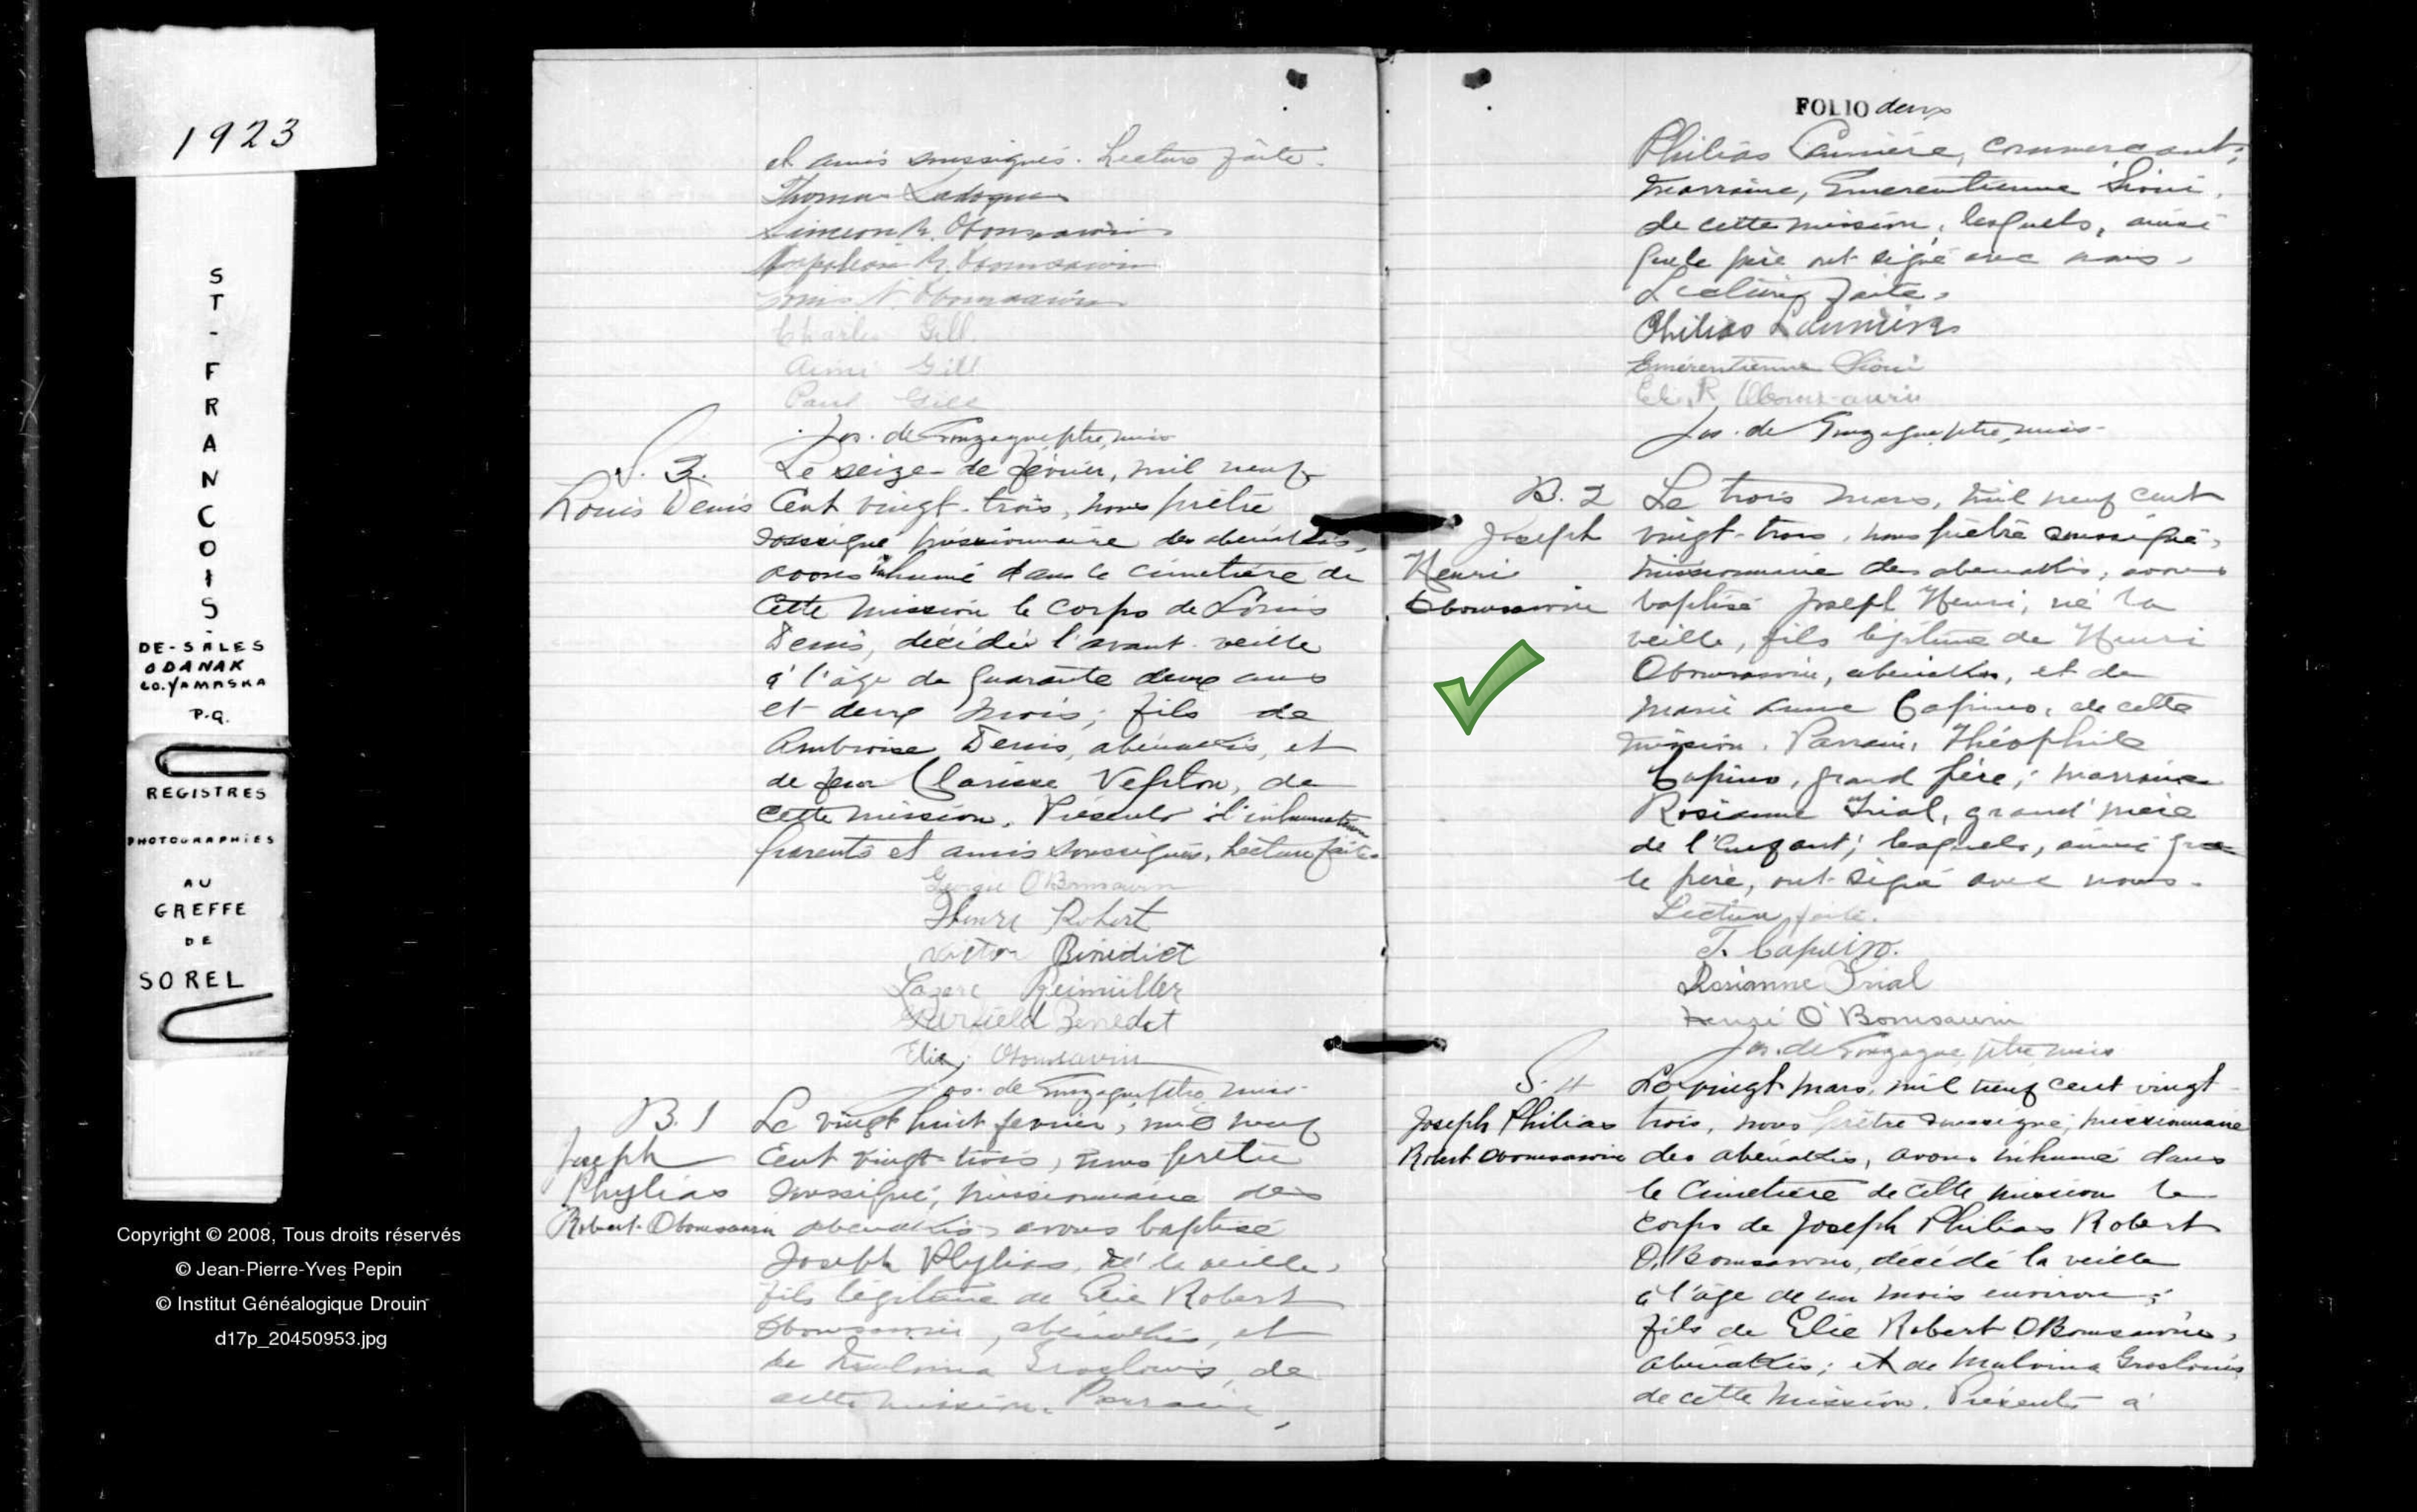 1923
ST-FRANCOIS-
DE-SALES
ODANAK
CO. YAMASKA
P.Q.
REGISTRES
PHOTOGRAPHIES
AU
GREFFE
DE
SOREL
Copyright © 2008, Tous droits réservés
© Jean-Pierre-Yves Pepin
© Institut Généalogique Drouin
d17p_20450953.jpg
et amis soussignés. Lecture faite.
Thomas
Simeon R. Obomsawin
Napoléon R. Obomsawin
Louis N. Obomsawin
Charles Gill
Aimé Gill
Paul Gill
Jos. de Gonzague ptre, miss
S. 3.
Louis Denis
Le seize de février, mil neuf
Cent vingt-trois, nous prêtre
soussigné missionnaire des abénakis,
avons inhumé dans le cimetière de
cette mission le corps de Louis
Denis, décédé l'avant-veille
à l'âge de quarante deux ans
et deux mois; fils de
Ambroise Denis, abénakis, et
de feue Clarisse de
cette mission. Présents à l'inhumation
parents et amis soussignés. Lecture faite
O'Bomsawin
Henri Robert
Victor Bénédict
Lazare
Garfield Benedict
Elie Obomsawin
Jos. de Gonzague ptre, miss.
B. 1
Joseph
Phylias
Robert-Obomsawin
Le vingt huit fevrier, mil neuf
Cent vingt-trois, nous prêtre
soussigné, missionnaire des
abénakis avons baptisé
Joseph Phylias, né la veille,
fils légitime de Elie Robert
Obomsawin, abénakis, et
de Malvina Groslouis, de
cette mission. Parrain,
FOLIO deux
Philias Lannière, commerçant;
marraine, Emerentienne Sioui,
de cette mission, lesquels, ainsi
que le père ont signé avec nous.
Lecture faite.
Philias Lannière
Emérentienne Sioui
Eli. R. Obomsawin
Jos. de Gonzague ptre, miss.
B. 2
Joseph
Henri
Obomsawin
Le trois mars, mil neuf cent
vingt-trois, nous prêtre soussigné,
missionnaire des abénakis, avons
baptisé Joseph Henri, né la
veille, fils légitime de Henri
Obomsawin, abénakis, et de
Marie Anne Capino, de cette
mission. Parrain, Théophile
Capino, grand père; marraine
Rosianne Trial, grand'mère
de l'enfant; lesquels, ainsi que
le père, ont signé avec nous.
Lecture faite.
T. Capino.
Rosianne Trial
Henri O'Bomsawin
Jos. de Gonzague ptre miss
S. 4
Joseph Philias
Robert Obomsawin
Le vingt mars, mil neuf cent vingt-
trois, nous prêtre soussigné, missionnaire
des abénakis, avons inhumé dans
le cimetière de cette mission le
corps de Joseph Philias Robert
O'Bomsawin, décédé la veille
à l'âge de un mois environ;
fils de Elie Robert O'Bomsawin,
abénakis; et de Malvina Groslouis
de cette mission. Présents à